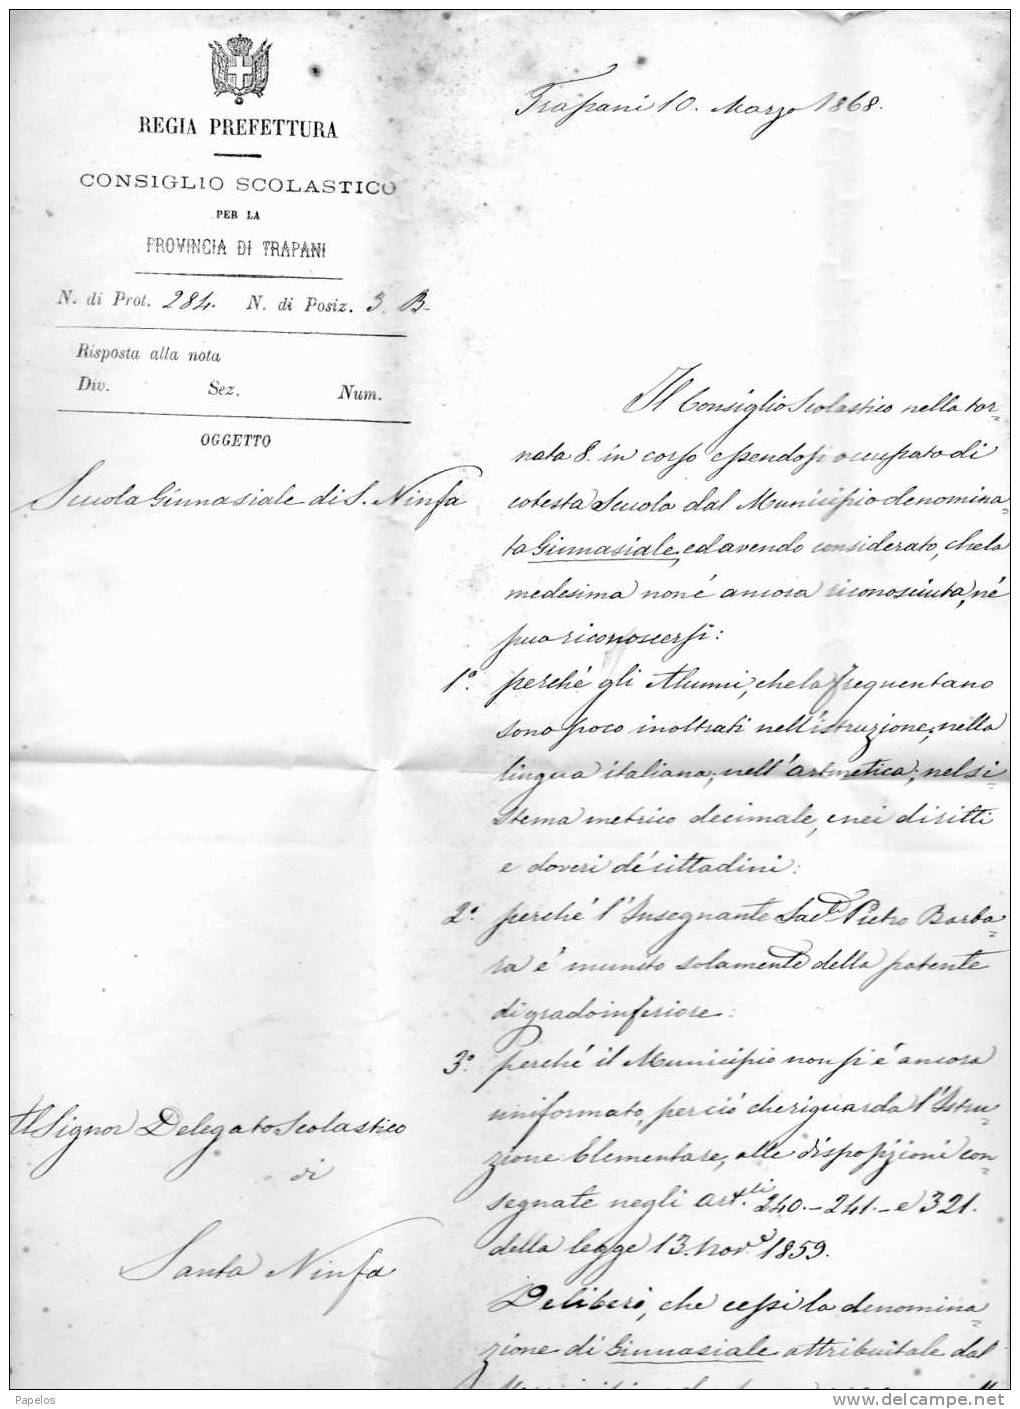 REGIA PREFETTURA
CONSIGLIO SCOLASTICO
PER LA
PROVINCIA DI TRAPANI
N. di Prot. 284. N. di Posiz. 3. B-
Risposta alla nota
Div. Sez. Num.
OGGETTO
Scuola Ginnasiale di S. Ninfa
Trapani 10. Marzo 1868.
Il Consiglio Scolastico nella tor=
nata 8. in corso essendosi occupato di
cotesta Scuola dal Municipio denomina=
ta Ginnasiale, ed avendo considerato, che la
medesima non é ancora riconosciuta, né
puo riconoscersi:
1.° perché gli Alunni, che la frequentano
sono poco inoltrati nell'istruzione, nella
lingua italiana, nell'aritmetica, nel si=
stema metrico decimale, e nei diritti
e doveri dé cittadini:
2.° perché l'Insegnante Sacte. Pietro Barba=
ra é munito solamente della patente
di grado inferiore:
3.° perché il Municipio non si é ancora
uniformato, per ció che riguarda l'Istru=
zione Elementare, alle disposizioni con=
segnate negli art.li 240.- 241.- e 321.
della legge 13. Nov.e 1859.
Deliberó, che cessi la denomina=
zione di Ginnasiale attribuitale dal
Il Signor Delegato Scolastico
di
Santa Ninfa
Papelos
www.delcampe.net